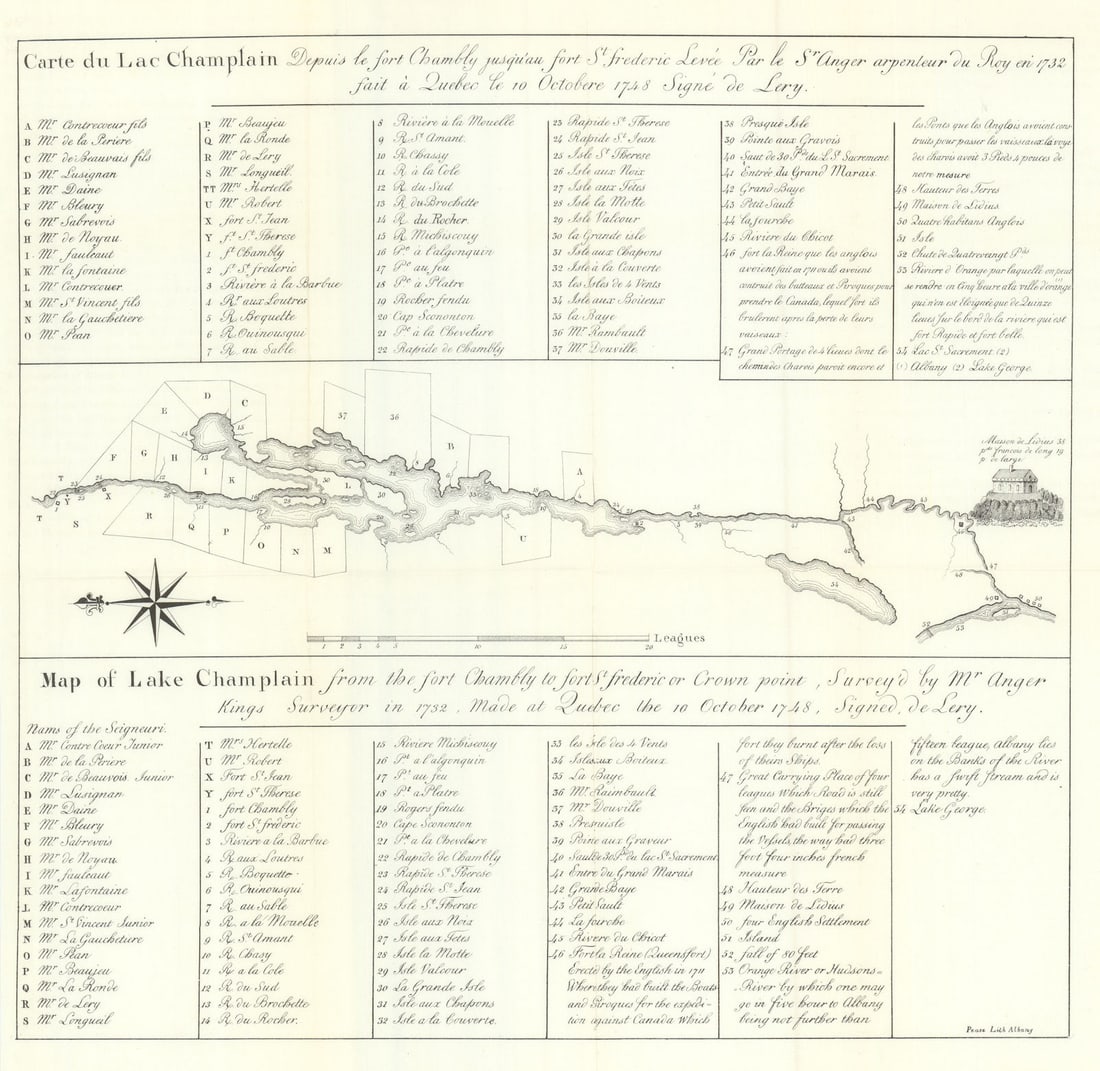 Carte du Lac Champlain Depuis le fort Chambly jusqu'au fort St. frederic Levée Par le Sr. Anger arpenteur du Roy en 1732
fait à Quebec le 10 Octobere 1748 Signé de Lery.
A Mr. Contrecoeur fils
B Mr. de la Periere
C Mr. de Beauvais fils
D Mr. Lusignan
E Mr. Daine
F Mr. Bleury
G Mr. Sabrevois
H Mr. de Noyau
I Mr. fauleaut
K Mr. la fontaine
L Mr. Contrecouer
M Mr. St. Vincent fils
N Mr. la Gauchetiere
O Mr. Pean
P Mr. Beaujeu
Q Mr. la Ronde
R Mr. de Lery
S Mr. Longueil
TT Mrs. Hertelle
U Mr. Robert
X fort St. Jean
Y ft. St. Therese
1 ft. Chambly
2 ft. St. frederic
3 Rivière à la Barbue
4 Rr. aux Loutres
5 R. Boquette
6 R. Ouinousqui
7 R. au Sable
8 Rivière à la Mouelle
9 R. St. Amant
10 R. Chassy
11 R. à la Cole
12 R. du Sud
13 R. du Brochette
14 R. du Rocher
15 R. Michiscouy
16 Pte. à l'algonquin
17 Pte. au feu
18 Pte. à Platre
19 Rocher fendu
20 Cap Scononton
21 Pte. à la Chevelure
22 Rapide de Chambly
23 Rapide St. Therese
24 Rapide St. Jean
25 Isle St. Therese
26 Isle aux Noix
27 Isle aux Tetes
28 Isle la Motte
29 Isle Valcour
30 la Grande isle
31 Isle aux Chapons
32 Isle à la Couverte
33 les Isles de 4 Vents
34 Isle aux Boiteux
35 la Baye
36 Mr. Rambault
37 Mr. Douville
38 Presque Isle
39 Pointe aux Gravois
40 Saut de 30 Pds. du L. St. Sacrement
41 Entrée du Grand Marais
42 Grand Baye
43 Petit Sault
44 la fourche
45 Rivière du Chicot
46 fort la Reine que les anglois
avoient fait en 1711 ou ils avoient
contruit des batteaux et Piroques pour
prendre le Canada, lequel fort ils
brulerent apres la perte de leurs
vaiseaux:
47 Grand Portage de 4 lieues dont le
chemin des Charois paroit encore et
les Ponts que les Anglois avoient cons-
truits pour passer les vaisseaux la voye
des charois avoit 3 Pieds 4 pouces de
notre mesure
48 Hauteur des Terres
49 Maison de Lidius
50 Quatre habitans Anglois
51 Isle
52 Chute de Quatrevengt Pds.
53 Riviere d'Orange par laquelle on peut
se rendre en Cinq heure a la ville d'orange
qui n'en est Eloignée que de Quinze
lieues sur le bord de la riviere qui est
fort Rapide et fort belle.
54 Lac St. Sacrement (2)
(1) Albany (2) Lake George.
Maison de Lidius 38
pds. francois de long 19
p. de large
Leagues
1 2 3 4 5 10 15 20
Map of Lake Champlain from the fort Chambly to fort St. frederic or Crown point, Survey'd by Mr. Anger
Kings Surveyor in 1732, Made at Quebec the 10 October 1748, Signed, de Lery.
Nams of the Seigneuri.
A Mr. Contre Coeur Junior
B Mr. de la Piriere
C Mr. de Beauvois Junior
D Mr. Lusignan
E Mr. Daine
F Mr. Bleury
G Mr. Sabrevois
H Mr. de Noyau
I Mr. fauleaut
K Mr. Lafontaine
L Mr. Contrecoeur
M Mr. St. Vincent Junior
N Mr. La Gaucheture
O Mr. Pean
P Mr. Beaujeu
Q Mr. La Ronde
R Mr. de Lery
S Mr. Longueil
T Mrs. Hertelle
U Mr. Robert
X Fort St. Jean
Y fort St. Therese
1 fort Chambly
2 fort St. frederic
3 Riviere a la Barbue
4 R. aux Loutres
5 R. Boquetto
6 R. Ouinousqui
7 R. au Sable
8 R. a la Mouelle
9 R. St. Amant
10 R. Chasy
11 R. a la Cole
12 R. du Sud
13 R. du Brochette
14 R. du Rocher.
15 Riviere Michiscouy
16 Pte. a l'algonquin
17 Pt. au feu
18 Pt. a Platre
19 Rogers fendu
20 Cape Scononton
21 Pte. a la Chevelure
22 Rapide de Chambly
23 Rapide St. Therese
24 Rapide St. Jean
25 Isle St. Therese
26 Isle aux Noix
27 Isle aux Tetes
28 Isle la Motte
29 Isle Valcour
30 La Grande Isle
31 Isle aux Chapons
32 Isle a la Couverte.
33 les Isle de 4 Vents
34 Isle aux Boiteux
35 La Baye
36 Mr. Raimbault
37 Mr. Douville
38 Presuisle
39 Poine aux Graveur
40 Sault de 30 Pds. du lac St. Sacrement
41 Entre du Grand Marais
42 Grande Baye
43 Petit Sault
44 La fourche
45 Rivere du Chicot
46 Fort la Reine (Queensfort)
Erected by the English in 1711
Where they had built the Boats
and Piroques for the expedi-
tion against Canada Which
fort they burnt after the loss
of theirs Ships.
47 Great Carrying Place of four
leagues which Road is still
seen and the Briges which the
English had built for passing
the Vessels, the way had three
foot four inches french
measure
48 Hauteur des Terre
49 Maison de Lidius
50 four English Settlement
51 Island
52 fall of 80 feet
53 Orange River or Hudsons=
River by which one may
go in five hour to Albany
being not further than
fifteen league, Albany lies
on the Banks of the River
has a swift stream and is
very pretty.
54 Lake George.
Pease Lith Albany